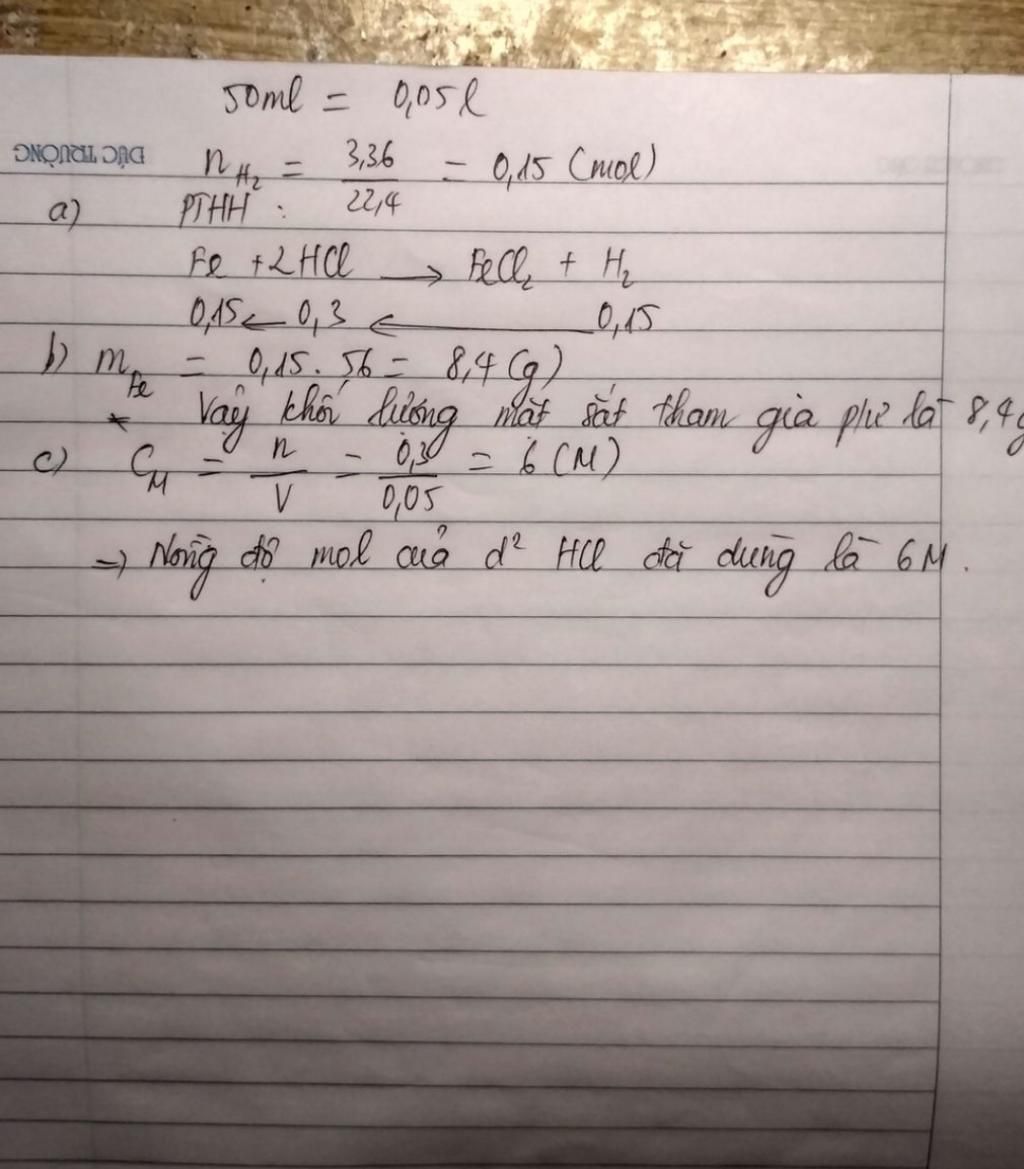 50ml = 0,05l
ĐỨC TRƯỜNG
n_H₂ = 3,36 / 22,4 = 0,15 (mol)
a) PTHH :
Fe + 2HCl → FeCl₂ + H₂
0,15 ← 0,3 ← 0,15
b) m_Fe = 0,15 . 56 = 8,4 (g)
* Vậy khối lượng mạt sắt tham gia phư là 8,4g
c) C_M = n / V = 0,3 / 0,05 = 6 (M)
=> Nồng độ mol của d² HCl đã dùng là 6M.